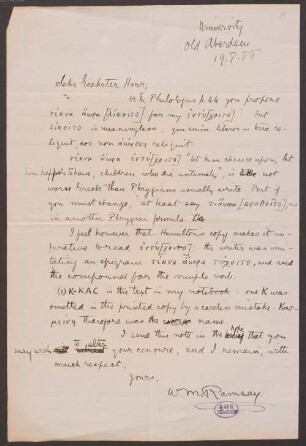 University
Old Aberdeen
19.8.88
Sehr Geehrter Herr,
In Philologus p. 44 you propose
τέκνα ἄωρα [λίποιτο] for my ἐντύ[χοιτο] : but
λίποιτο is meaningless,
τέκνα ἄωρα ἐντύ[χοιτο] "let him chance upon, let
him happen to have, children who die untimely", is not
worse Greek than Phrygians usually write. But if
you must change, at least say
in another Phrygian formula
I feel however that Hamilton's copy makes it im-
perative to read ἐντύ[χοιτο]. The writer was imi-
tating an epigram τέκνα ἄωρα τύχοιτο, and used
the compound for the simple verb.
(2) Κ·ΚΑC is the text in my notebook : one K was
omitted in the printed copy by a careless mistake.
therefore was the name
I send this note in the hope that you
may wish to alter your censure, and I remain, with
much respect,
Yours,
W. M. Ramsay